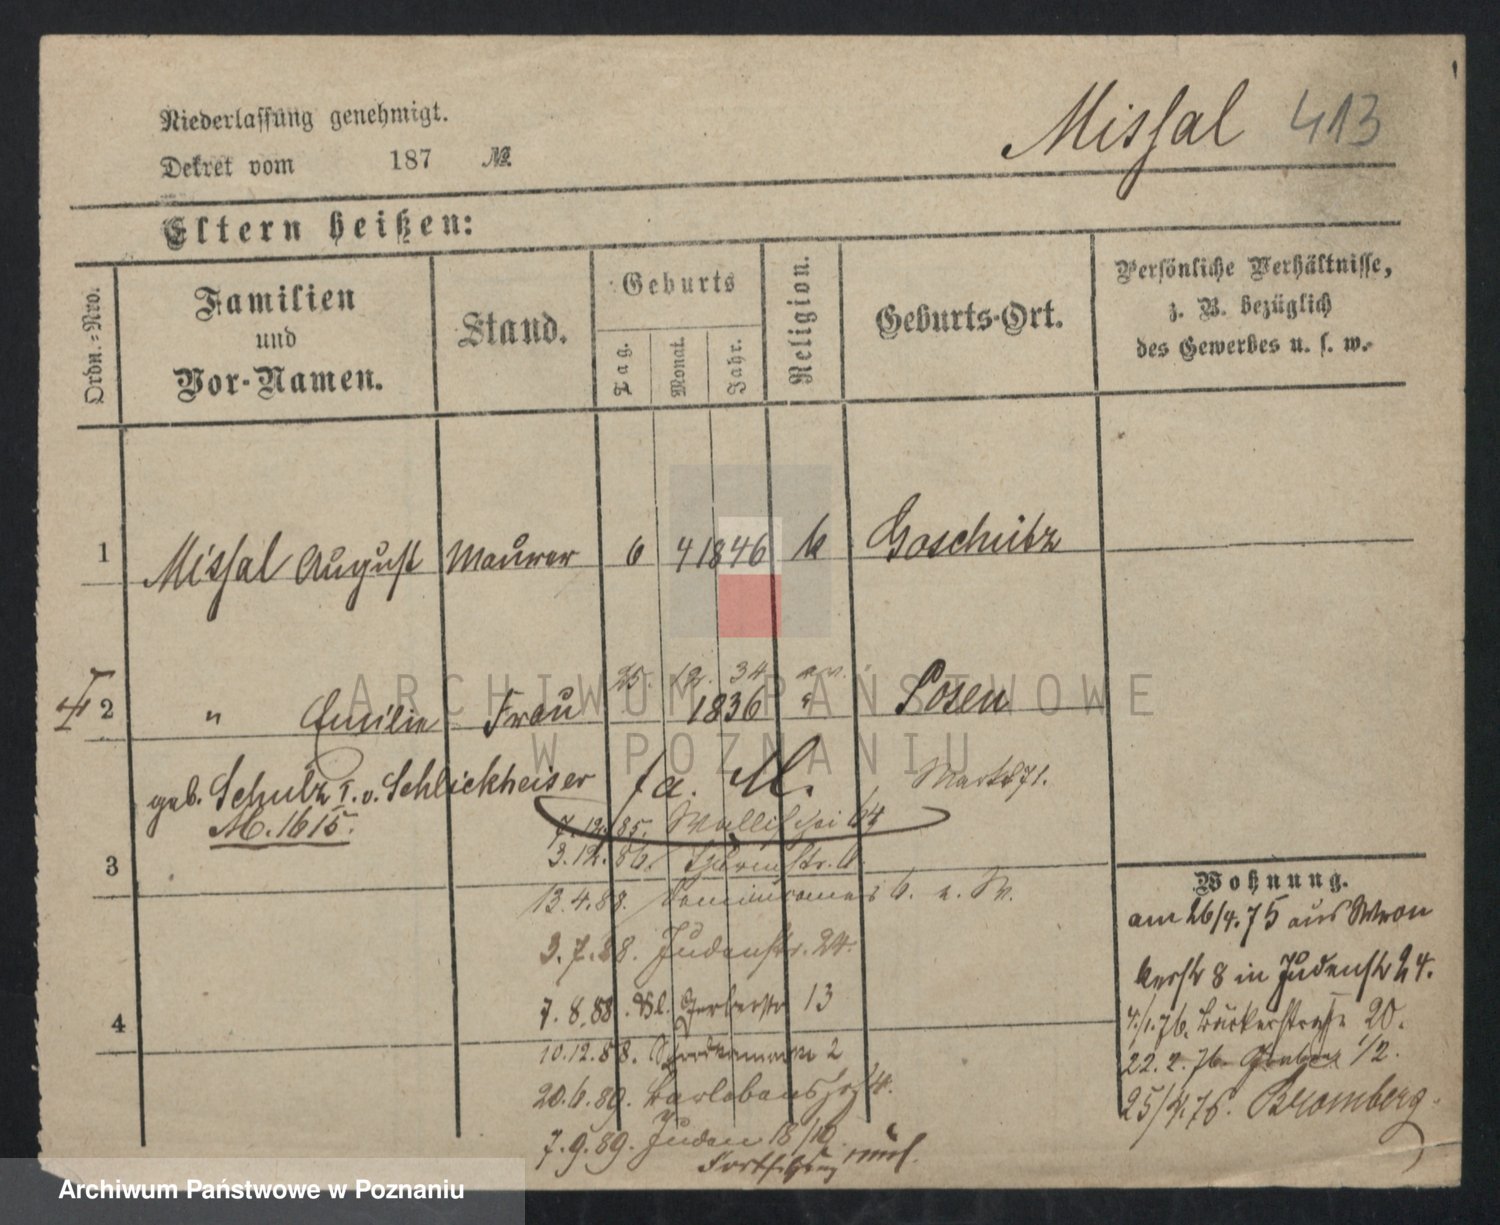 Niederlassung genehmigt.
Dekret vom 187 №
Missal 413
Eltern heißen:
Ordn.=Nro.
Familien
und
Vor-Namen.
Stand.
Geburts
Tag.
Monat.
Jahr.
Religion.
Geburts-Ort.
Persönliche Verhältnisse,
z. B. bezüglich
des Gewerbes u. s. w.
1 Missal August Maurer 6 4 1846 k Goschütz
25. 12. 34
2 " Emilie Frau 1836 " Posen
geb. Schulz I. v. Schlickheiser fa. M.
M. 1615.
7.12.85. Wallischei 64
3.12.86.
3
13.4.88. Dominikaner 6. a. W.
3.7.88. Judenstr. 24.
7.8.88. Kl. Gerberstr 13
4
10.12.88. 2
20.6.89. 4.
7.9.89. Juden 18/19
Fortsetzung
Wohnung.
am 26/4.75 aus Wron
kerstr 8 in Judenstr 24.
4./1.76. Bäckerstraße 20.
22.2.76. Graben 1/2.
25/4.76. Bromberg.
ARCHIWUM PAŃSTWOWE
W POZNANIU
Archiwum Państwowe w Poznaniu